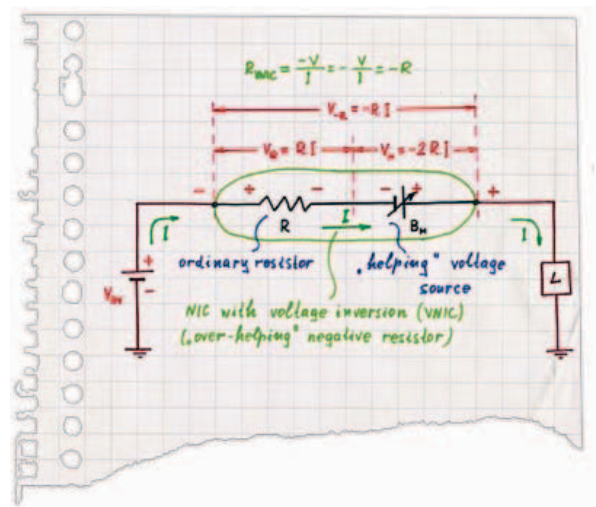 R_VNIC = -V/I = - V/I = -R
V_-R = -RI
V_R = RI V_H = -2RI
- + - - + +
I R I B_H I
ordinary resistor „helping" voltage
source
+
V_IN
-
L
NIC with voltage inversion (VNIC)
(„over-helping" negative resistor)